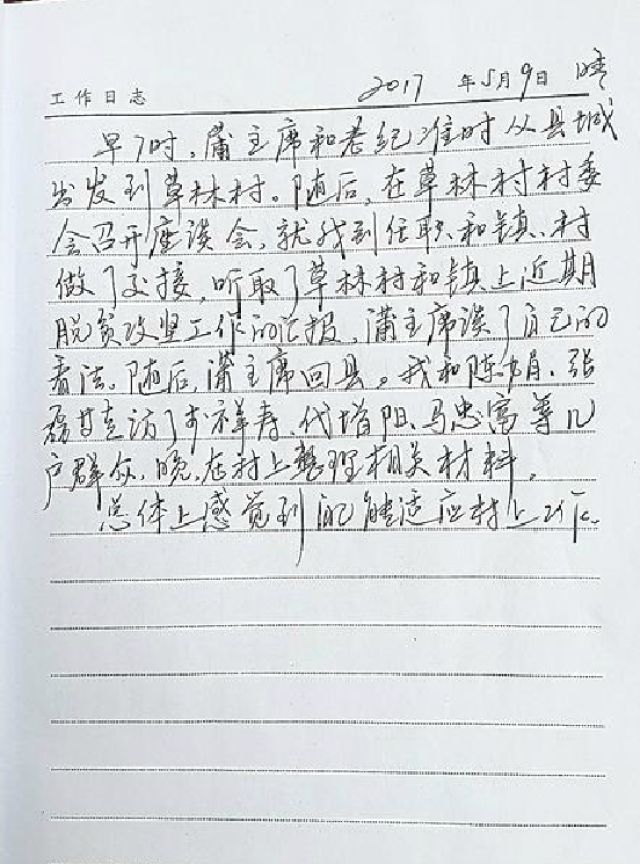 工作日志 2017 年5月9日 晴
早7时，蒲主席和老纪准时从县城
出发到草林村。随后，在草林村村委
会召开座谈会，就我到任职、和镇、村
做了交接，听取了草林村和镇上近期
脱贫攻坚工作的汇报，蒲主席谈了自己的
看法。随后，蒲主席回县。我和陈 张
磊 走访了 祥寿、代 阳、马忠富等几
户群众，晚，在村上整理相关材料。
总体上感觉到 能适应村上工作。